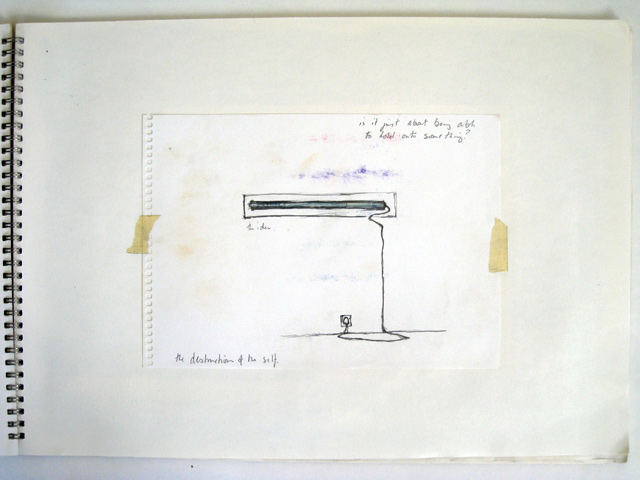 is it just about being able
to hold onto something?
the idea
the destruction of the self.